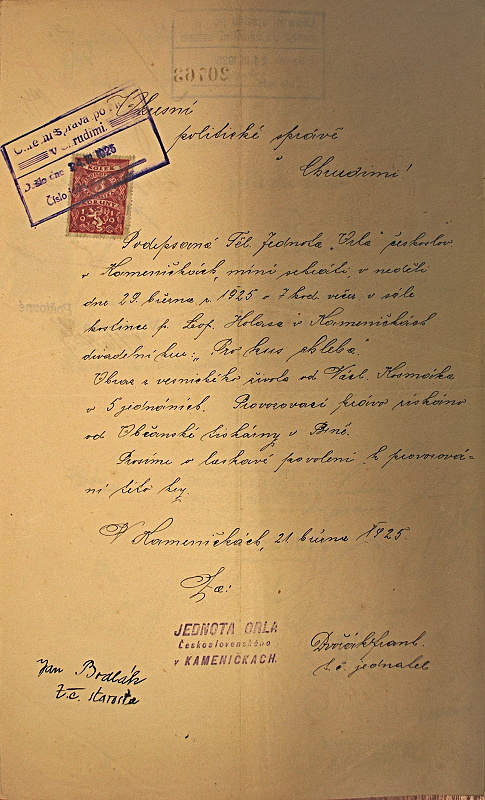 20763
Okresní
politické správě
v Chrudimi!
Okresní správa pol
v Chrudimi.
Došlo dne 24 III 1925
Číslo
KOLEK
KORUNY
Podepsaná Těl. Jednota „Orla" českoslov.
v Kameničkách, míní sehráti v neděli
dne 29. března r. 1925 o 7 hod. večer v sále
hostince p. Leop. Holasa v Kameničkách
divadelní kus: „Pro kus chleba".
Obraz z vesnického života od Václ. Kosmáka
v 5 jednáních. Provozovací právo získáno
od Občanské tiskárny v Brně.
Prosíme o laskavé povolení k provozová-
ní této hry.
V Kameničkách, 21. března 1925.
Za:
JEDNOTA ORLA
Československého
v KAMENIČKÁCH.
Dvořák Frant.
t. č. jednatel
Jan Brdlák
t. č. starosta